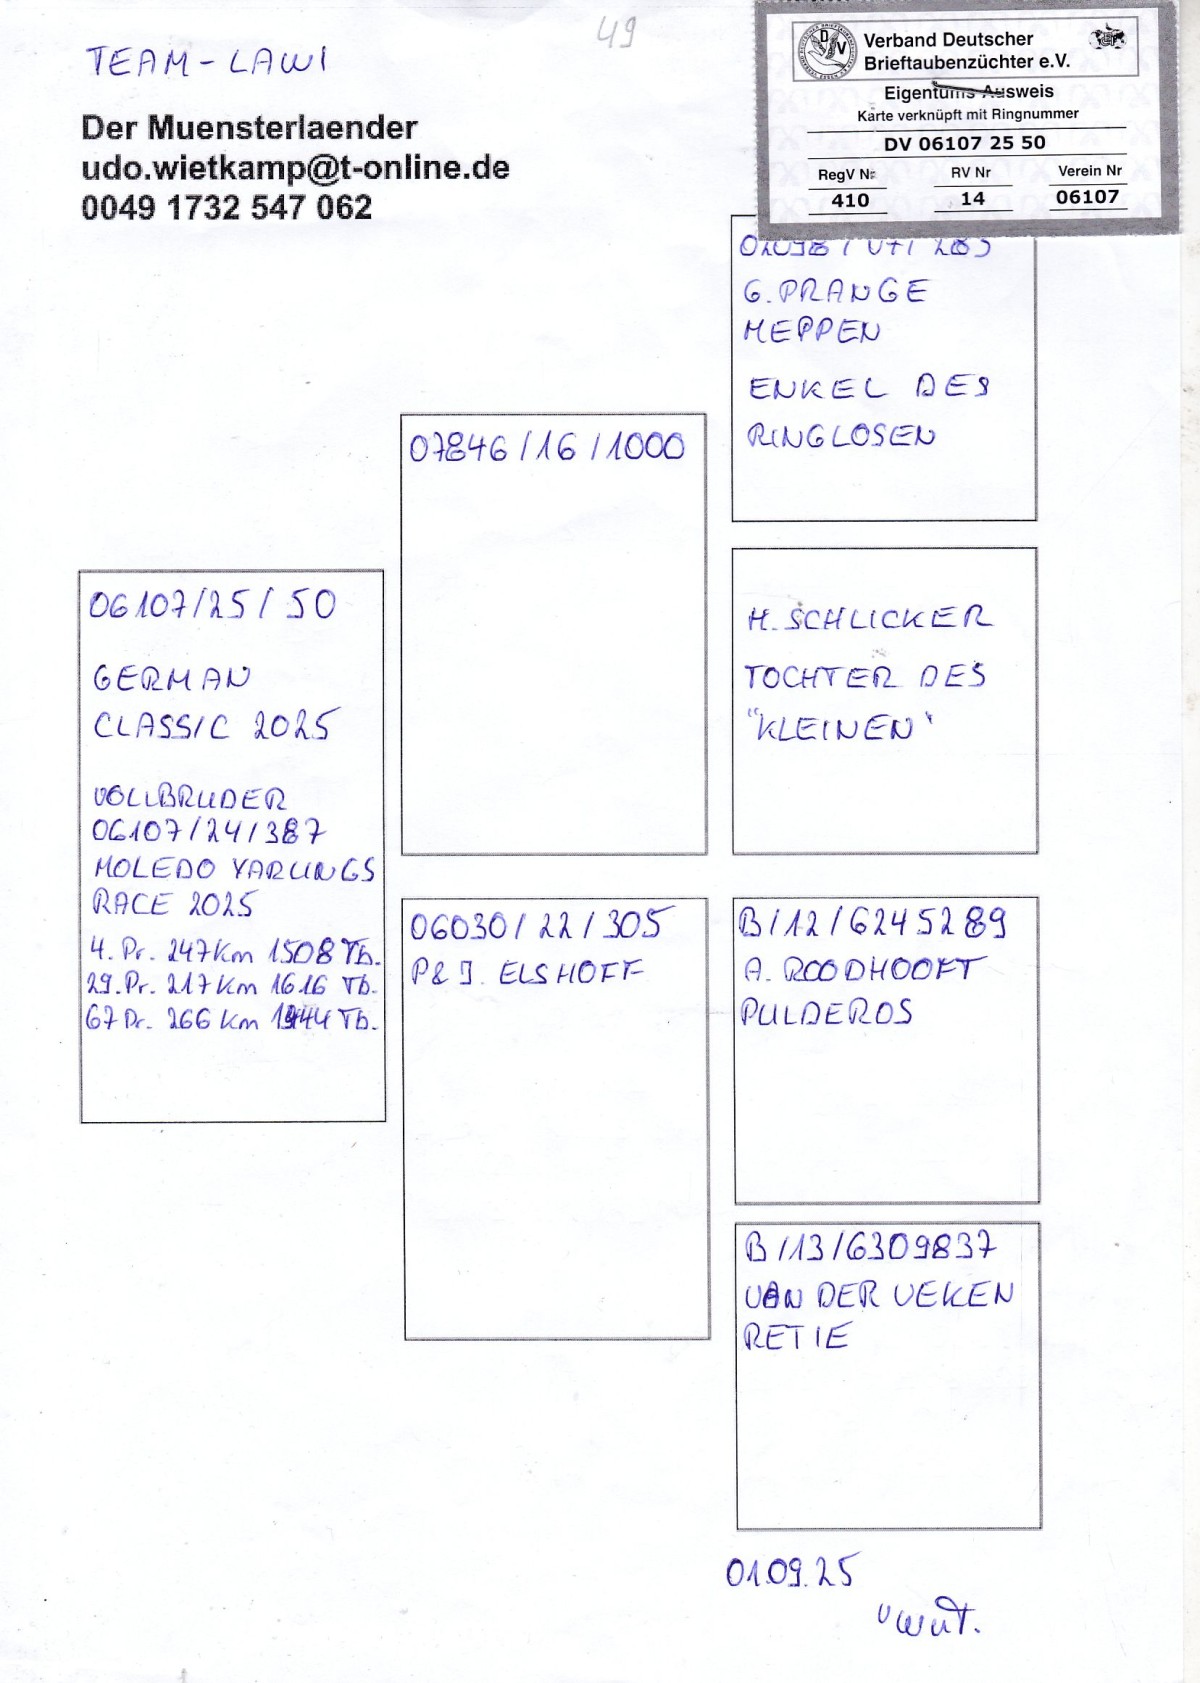 49
TEAM-LAWI
Der Muensterlaender
udo.wietkamp@t-online.de
0049 1732 547 062
Verband Deutscher
Brieftaubenzüchter e.V.
Eigentums-Ausweis
Karte verknüpft mit Ringnummer
DV 06107 25 50
RegV Nr RV Nr Verein Nr
410 14 06107
G. PRANGE
MEPPEN
ENKEL DES
RINGLOSEN
07846/16/1000
H. SCHLICKER
TOCHTER DES
"KLEINEN"
06107/25/50
GERMAN
CLASSIC 2025
VOLLBRUDER
06107/24/387
MOLEDO YARLINGS
RACE 2025
4. Pr. 247 Km 1508 Tb.
29. Pr. 217 Km 1616 Tb.
67 Pr. 266 Km 1444 Tb.
06030/22/305
P & J. ELSHOFF
B/12/6245289
A. ROODHOOFT
PULDEROS
B/13/6309837
VAN DER VEKEN
RETIE
01.09.25